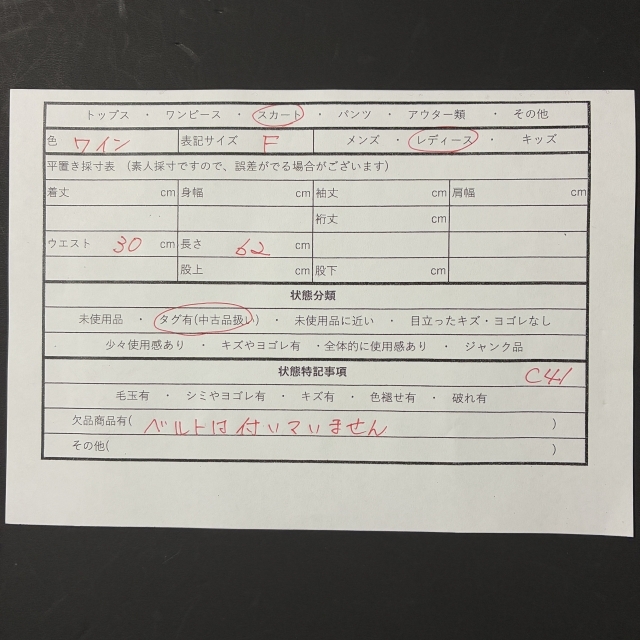 トップス ・ ワンピース ・ スカート ・ パンツ ・ アウター類 ・ その他
色 ワイン 表記サイズ F メンズ ・ レディース ・ キッズ
平置き採寸表 (素人採寸ですので、誤差がでる場合がございます)
着丈 cm 身幅 cm 袖丈 cm 肩幅 cm
裄丈 cm
ウエスト 30 cm 長さ 62 cm
股上 cm 股下 cm
状態分類
未使用品 ・ タグ有(中古品扱い) ・ 未使用品に近い ・ 目立ったキズ・ヨゴレなし
少々使用感あり ・ キズやヨゴレ有 ・全体的に使用感あり ・ ジャンク品
状態特記事項 C41
毛玉有 ・ シミやヨゴレ有 ・ キズ有 ・ 色褪せ有 ・ 破れ有
欠品商品有( ベルトは付いていません )
その他( )